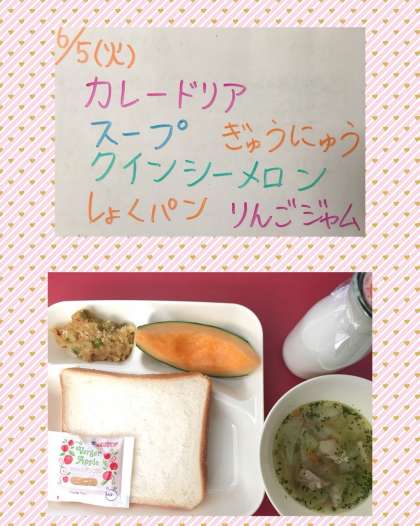 6/5(火)
カレードリア
スープ ぎゅうにゅう
クインシーメロン
しょくパン りんごジャム
Verger
Apple